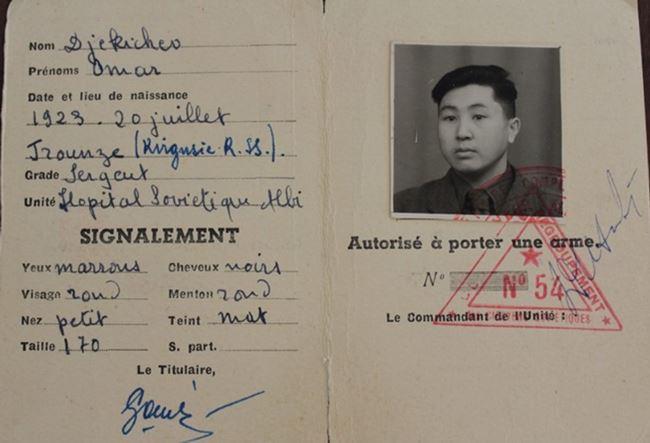 Nom Djekichev
Prénoms Omar
Date et lieu de naissance
1923. 20 juillet
Frounze (Kirgusie R.SS.).
Grade Sergent
Unité Hopital Sovietique Albi
SIGNALEMENT
Yeux marrons Cheveux noirs
Visage rond Menton rond
Nez petit Teint mat
Taille 170 S. part.
Le Titulaire,
Autorisé à porter une arme.
N° N° 54
REGROUPEMENT
Le Commandant de l'Unité :